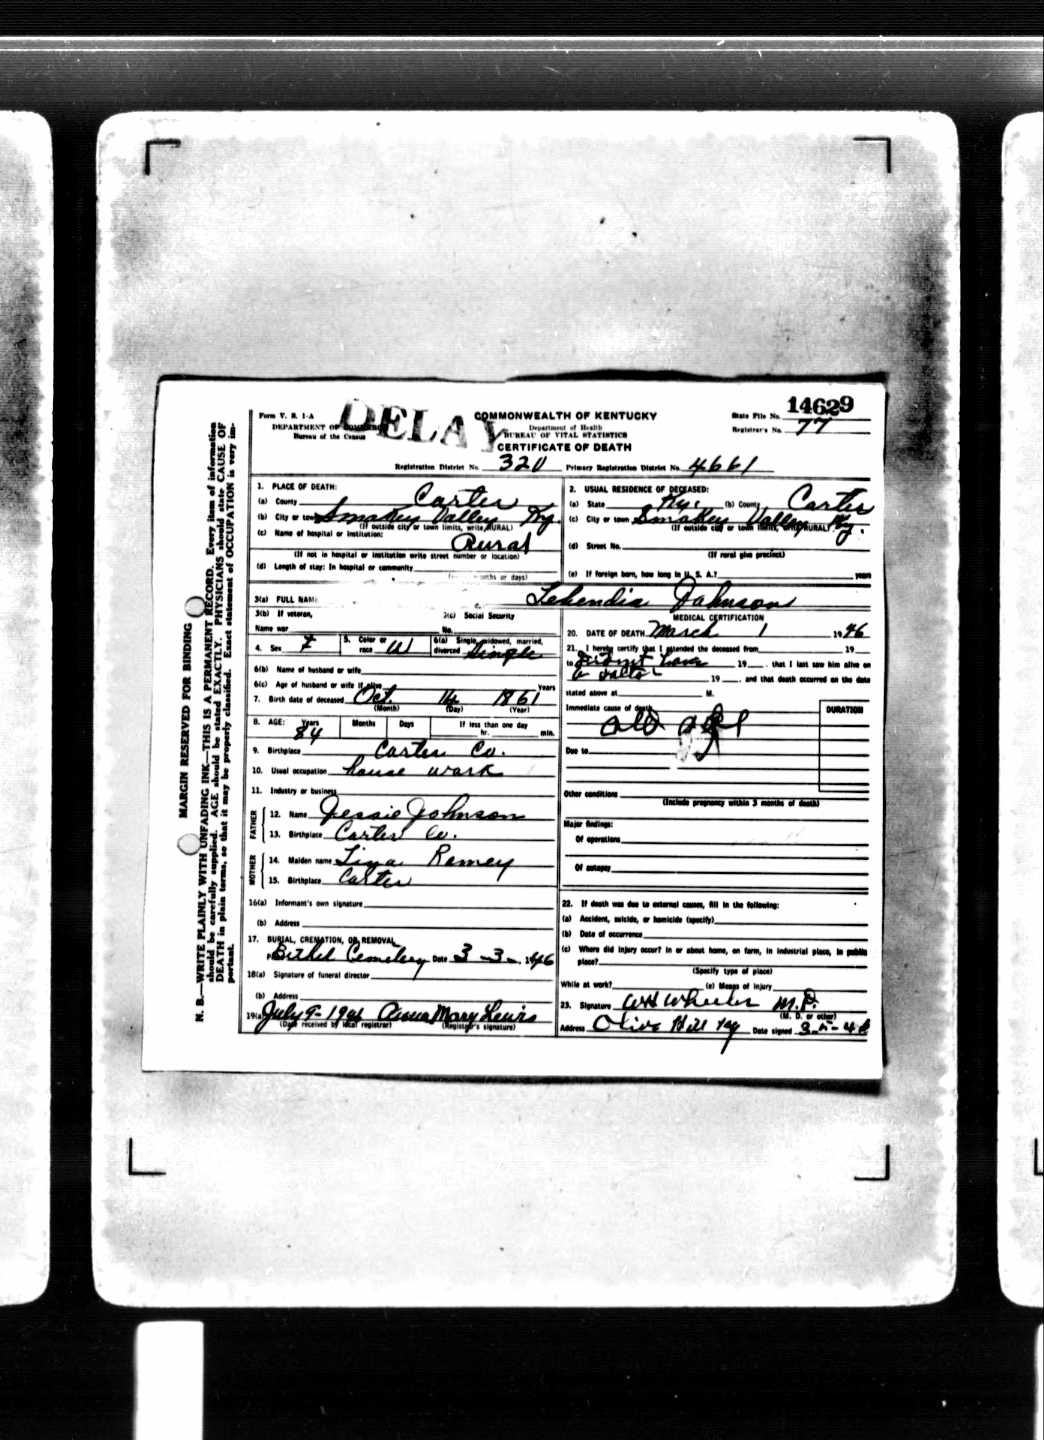 MARGIN RESERVED FOR BINDING
N. B.—WRITE PLAINLY WITH UNFADING INK—THIS IS A PERMANENT RECORD. Every item of information
should be carefully supplied. AGE should be stated EXACTLY. PHYSICIANS should state CAUSE OF
DEATH in plain terms, so that it may be properly classified. Exact statement of OCCUPATION is very im-
portant.
Form V. S. 1-A
DEPARTMENT OF COMMERCE
Bureau of the Census
DELAY
COMMONWEALTH OF KENTUCKY
Department of Health
BUREAU OF VITAL STATISTICS
CERTIFICATE OF DEATH
State File No. 14629
Registrar's No. 77
Registration District No. 320 Primary Registration District No. 4661
1. PLACE OF DEATH:
(a) County Carter
(b) City or town Smokey Valley Ky.
(If outside city or town limits, write RURAL)
(c) Name of hospital or institution: Rural
(If not in hospital or institution write street number or location)
(d) Length of stay: In hospital or community
months or days)
2. USUAL RESIDENCE OF DECEASED:
(a) State Ky. (b) County Carter
(c) City or town Smokey Valley Ky.
(If outside city or town limits, write RURAL)
(d) Street No.
(If rural give precinct)
(e) If foreign born, how long in U. S. A.? years
3(a) FULL NAME Johnson
3(b) If veteran,
Name war
3(c) Social Security
No.
4. Sex F
5. Color or
race W
6(a) Single, widowed, married,
divorced Single
6(b) Name of husband or wife
6(c) Age of husband or wife if alive Years
7. Birth date of deceased Oct. 14 1861
(Month) (Day) (Year)
8. AGE: Years Months Days If less than one day
84 hr. min.
9. Birthplace Carter Co.
10. Usual occupation house work
11. Industry or business
FATHER
12. Name Jessie Johnson
13. Birthplace Carter Co.
MOTHER
14. Maiden name Ramey
15. Birthplace Carter
16(a) Informant's own signature
(b) Address
17. BURIAL, CREMATION, OR REMOVAL
Bethel Cemetery Date 3-3-1946
18(a) Signature of funeral director
(b) Address
19(a) July 9-1946 Anna Mary Lewis
(Date received by local registrar) (Registrar's signature)
MEDICAL CERTIFICATION
20. DATE OF DEATH March 1 1946
21. I hereby certify that I attended the deceased from 19
to didnt have 19 , that I last saw him alive on
a doctor 19 , and that death occurred on the date
stated above at M.
Immediate cause of death DURATION
old age
Due to
Other conditions
(Include pregnancy within 3 months of death)
Major findings:
Of operations
Of autopsy
22. If death was due to external causes, fill in the following:
(a) Accident, suicide, or homicide (specify)
(b) Date of occurrence
(c) Where did injury occur? In or about home, on farm, in industrial place, in public
place?
(Specify type of place)
While at work? (e) Means of injury
23. Signature WH Wheeler M.D.
(M. D. or other)
Address Olive Hill Ky Date signed